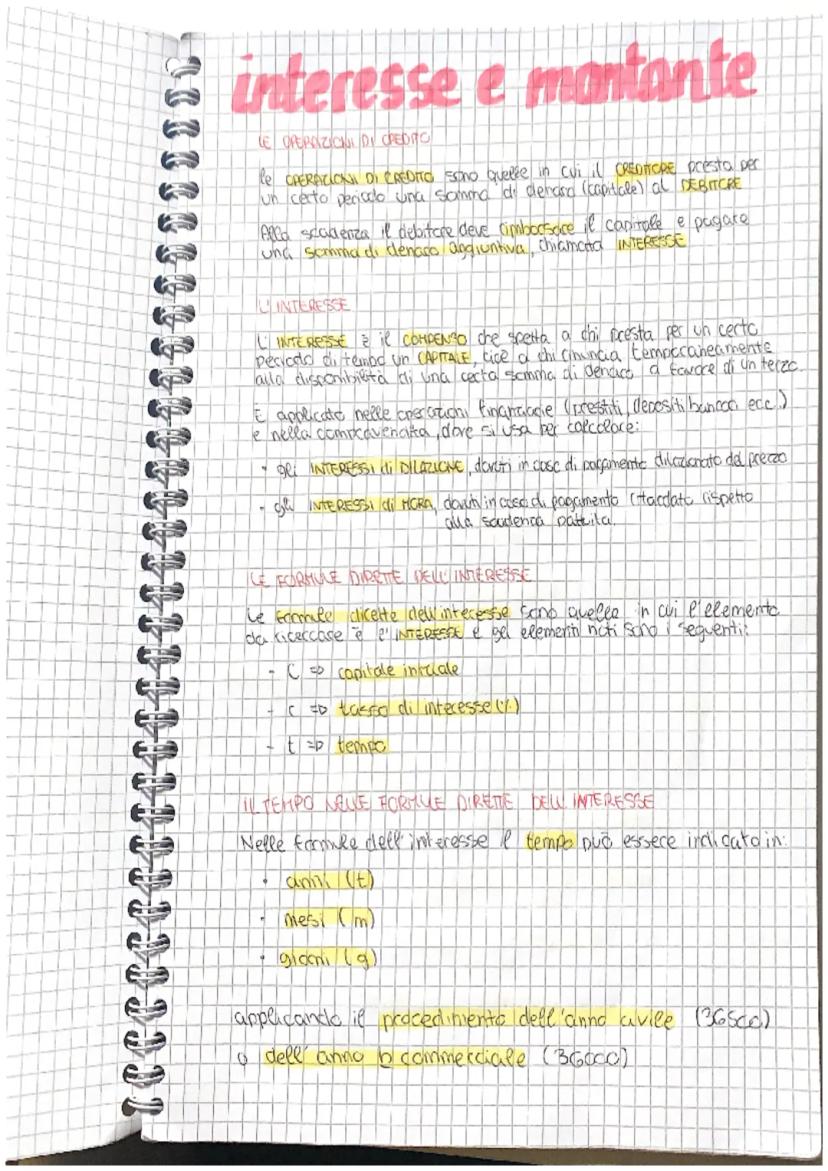 interesse e montante
LE OPERAZIONI DI CREDITO
le OPERAZIONI DI CREDITO sono quelle in cui il CREDITORE presta per
un certo periodo una somma di denaro (capitale) al DEBITORE
Alla scadenza il debitore deve rimborsare il capitale e pagare
una somma di denaro aggiuntiva, chiamata INTERESSE
L'INTERESSE
L'INTERESSE è il COMPENSO che spetta a chi presta per un certo
periodo di tempo un CAPITALE, cioè a chi rinuncia temporaneamente
alla disponibilità di una certa somma di denaro a favore di un terzo
È applicato nelle operazioni finanziarie (prestiti, depositi bancari ecc.)
e nella compravendita, dove si usa per calcolare:
- gli INTERESSI di DILAZIONE, dovuti in caso di pagamento dilazionato del prezzo
- gli INTERESSI di MORA, dovuti in caso di pagamento ritardato rispetto
alla scadenza pattuita.
LE FORMULE DIRETTE DELL'INTERESSE
Le formule dirette dell'interesse sono quelle in cui l'elemento
da ricercare è l'INTERESSE e gli elementi noti sono i seguenti:
- C => capitale iniziale
- r => tasso di interesse (%)
- t => tempo
IL TEMPO NELLE FORMULE DIRETTE DELL'INTERESSE
Nelle formule dell'interesse il tempo può essere indicato in:
· anni (t)
· mesi (m)
· giorni (g)
applicando il procedimento dell'anno civile (36500)
o dell'anno commerciale (36000)